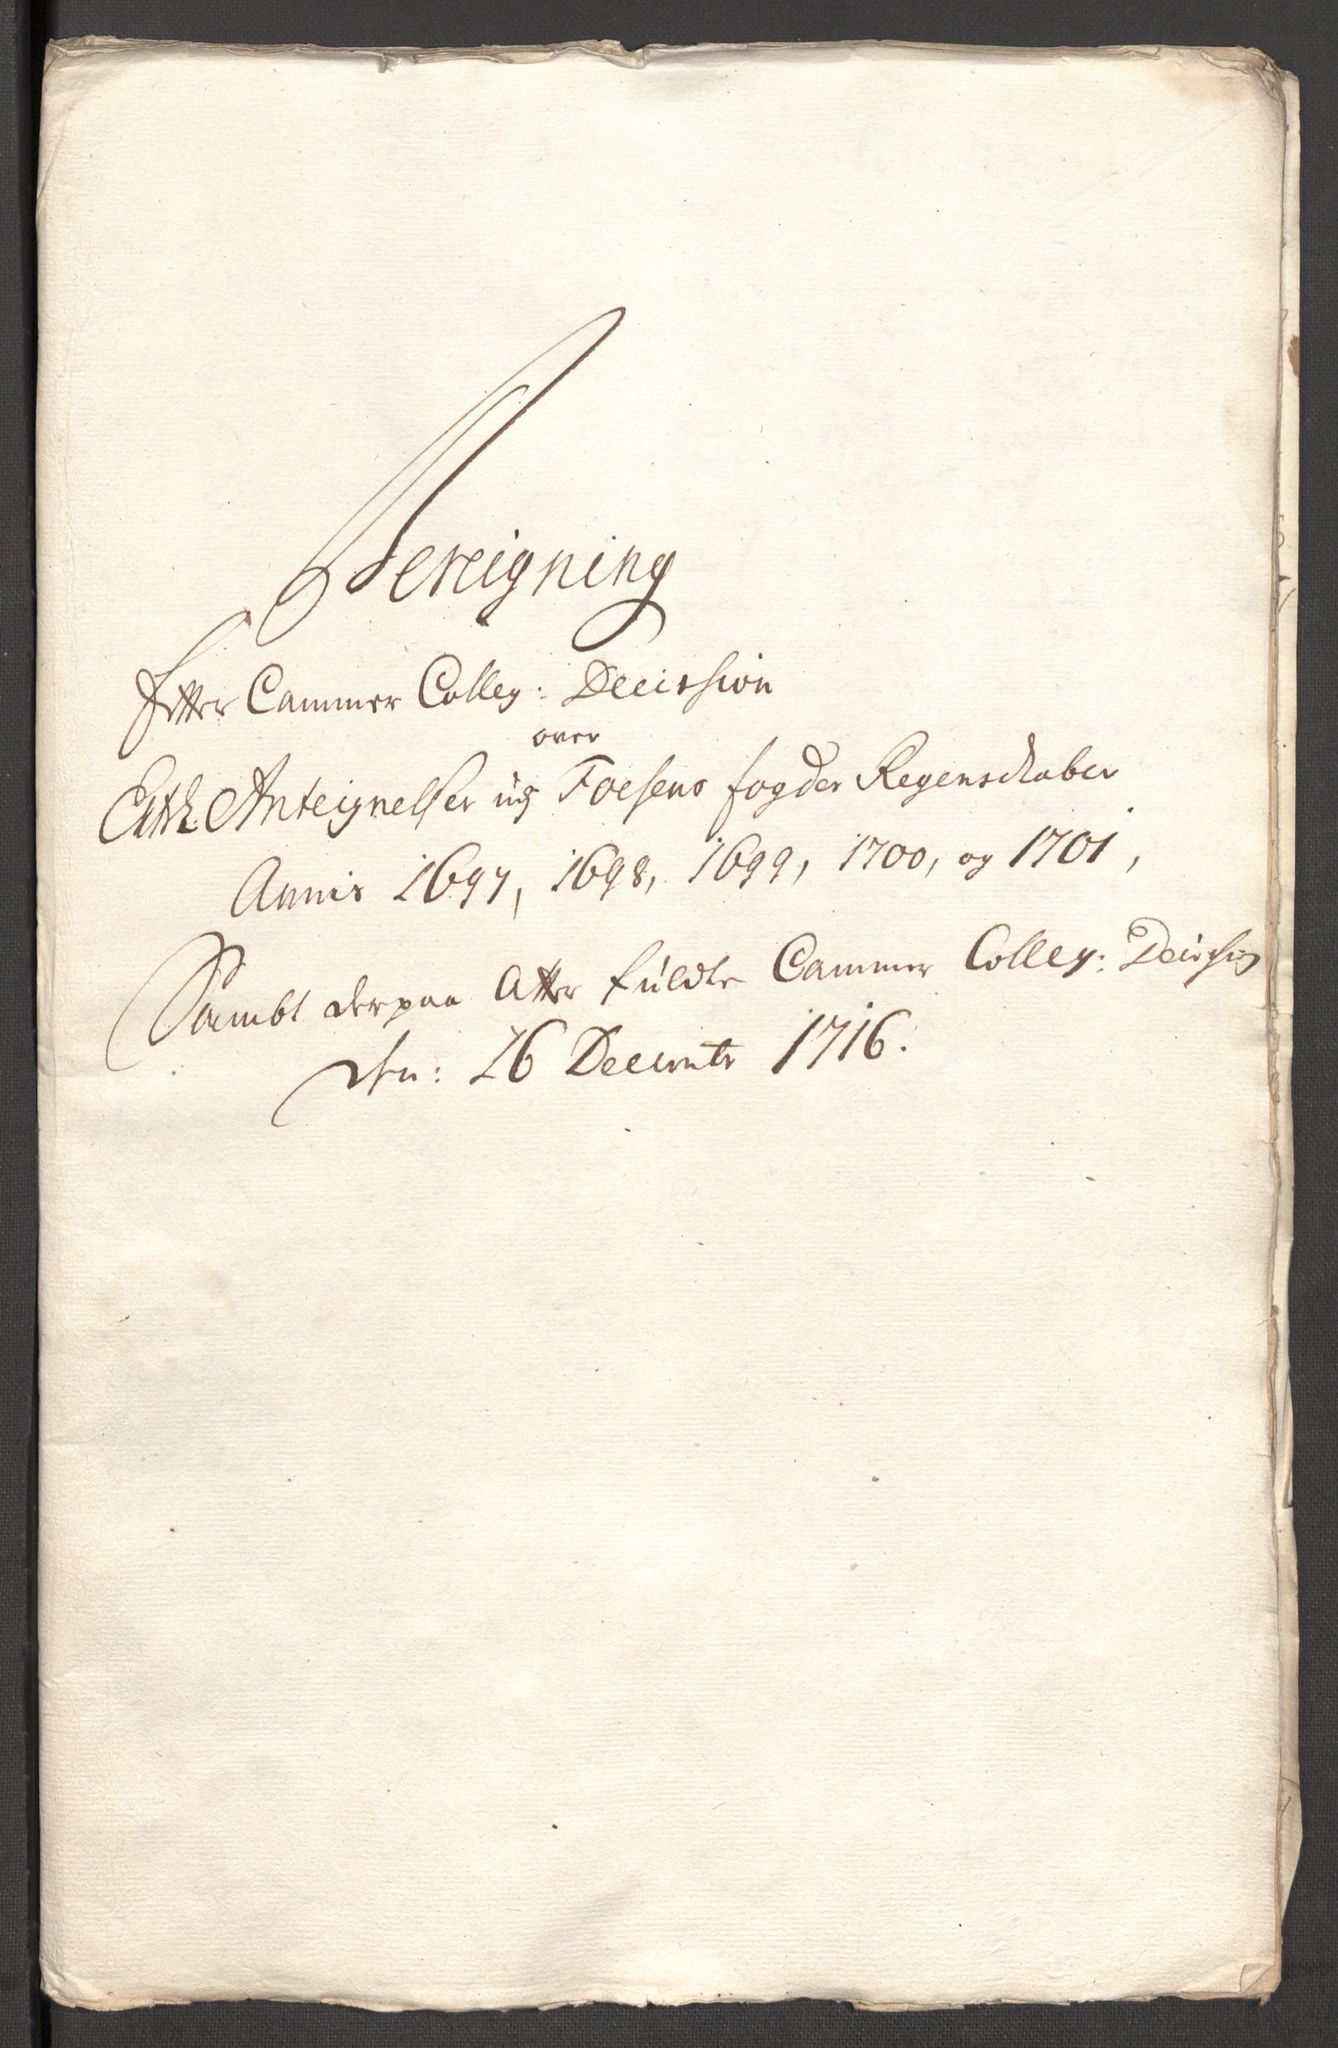 Bereigning
Efter Cammer Colleg: Decission
over
Anteignelser udj Foesens fogderj Regenschaber
Annis 1697, 1698, 1699, 1700, og 1701,
Sambt derpaa Atter fuldte Cammer Colleg: Decission
den: 26 Decembr 1716.